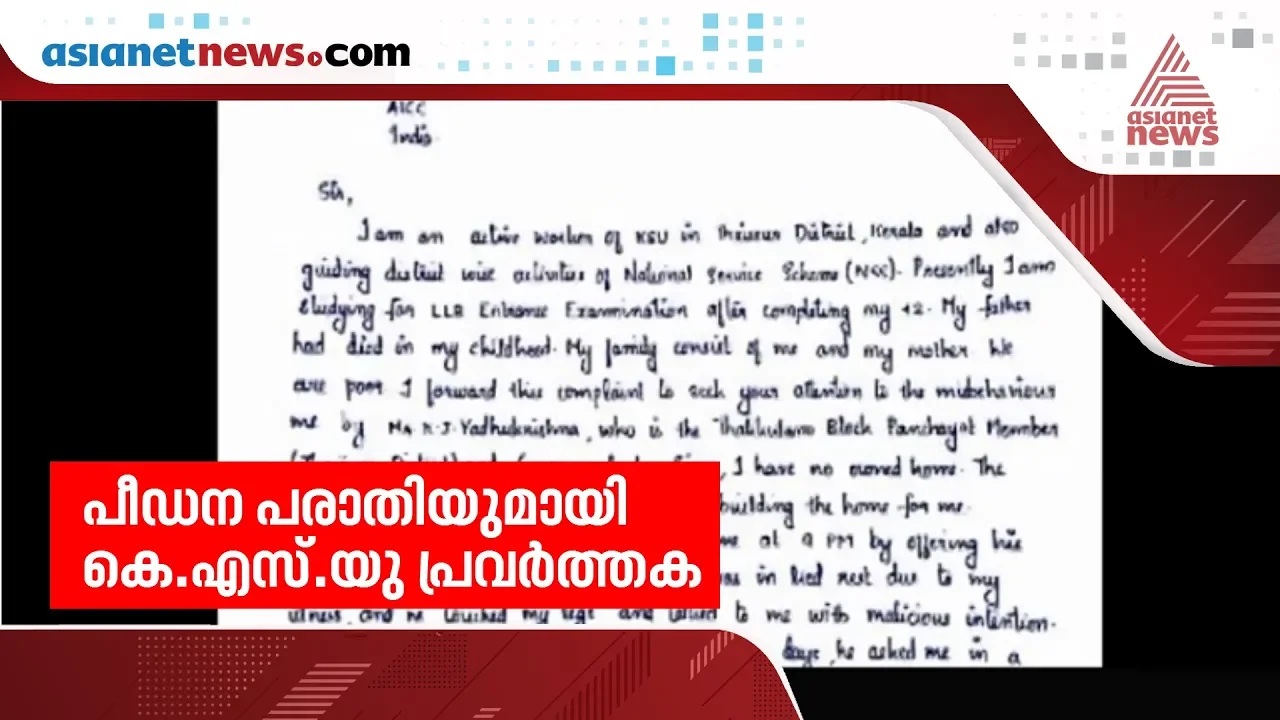 asianetnews.com
asianet
news
AICC
India.
Sir,
I am an active worker of KSU in Thrissur District, Kerala and also
guiding district wise activities of National Service Scheme (NCC). Presently I am
studying for LLB Entrance Examination after completing my +2. My father
had died in my childhood. My family consist of me and my mother. We
are poor. I forward this complaint to seek your attention to the misbehaviour
me by Mr. K.J. Yadhukrishna, who is the Thalikulam Block Panchayat Member
, I have no owned home. The
building the home for me.
me at 9 PM by offering his
was in bed rest due to my
illness, and he touched my legs and talked to me with malicious intention.
days, he asked me in a
പീഡന പരാതിയുമായി
കെ.എസ്.യു പ്രവർത്തക